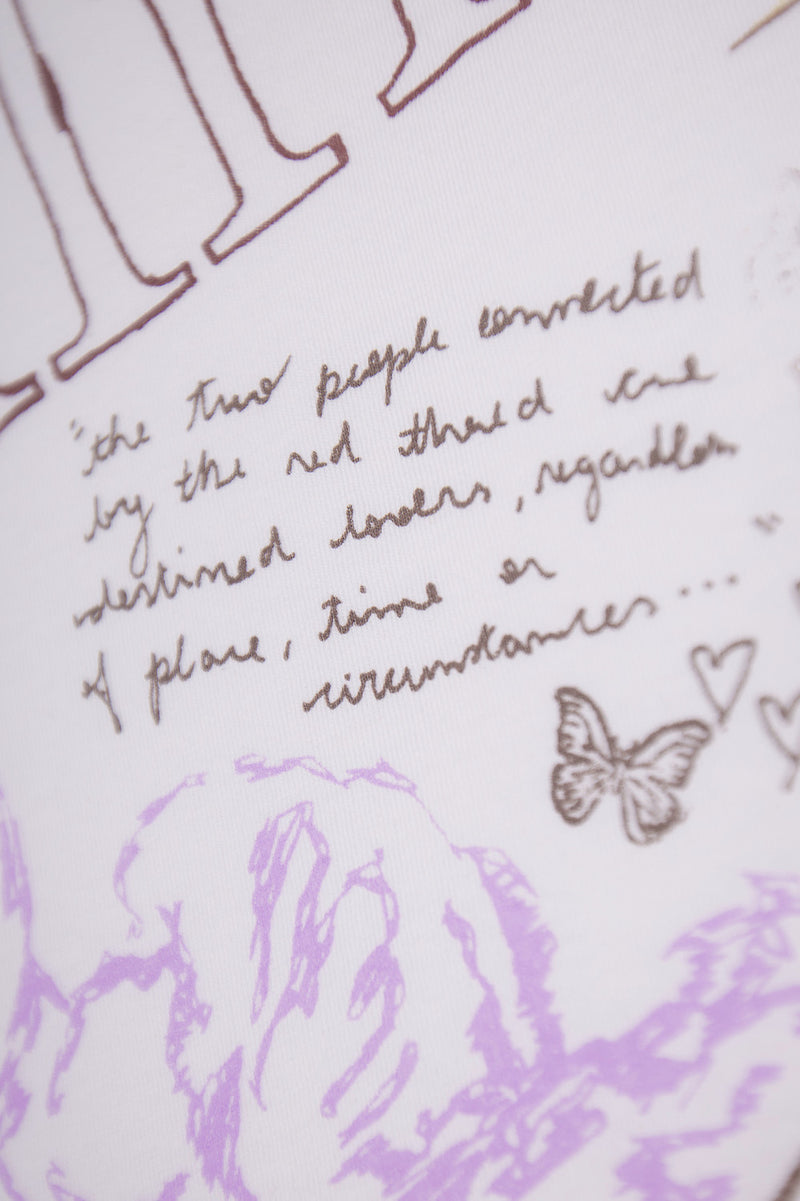 "the two people connected
by the red thread are
destined lovers, regardless
of place, time or
circumstances..."